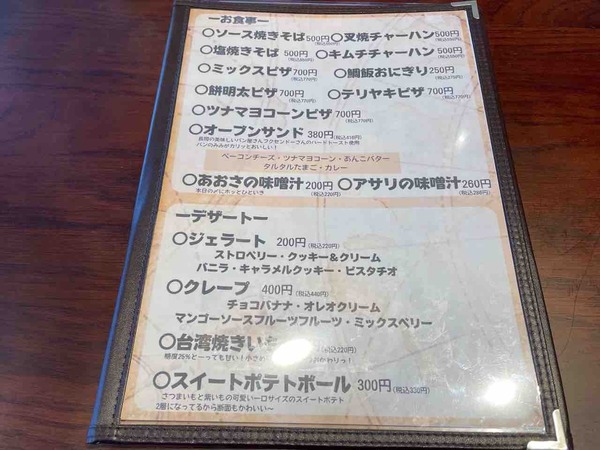 ーお食事ー
〇ソース焼きそば500円(税込550円) 〇叉焼チャーハン500円(税込550円)
〇塩焼きそば 500円(税込550円) 〇キムチチャーハン500円(税込550円)
〇ミックスピザ700円(税込770円) 〇鯛飯おにぎり250円(税込275円)
〇餅明太ピザ700円(税込770円) 〇テリヤキピザ700円(税込770円)
〇ツナマヨコーンピザ700円(税込770円)
〇オープンサンド 380円(税込418円)
パンのみみがカリッとおいしい!
ベーコンチーズ・ツナマヨコーン・あんこバター
タルタルたまご・カレー
〇あおさの味噌汁200円(税込220円) 〇アサリの味噌汁260円(税込286円)
本日の〆にホッとひといき
ーデザートー
〇ジェラート 200円(税込220円)
ストロベリー・クッキー&クリーム
バニラ・キャラメルクッキー・ピスタチオ
〇クレープ 400円(税込440円)
チョコバナナ・オレオクリーム
マンゴーソースフルーツフルーツ・ミックスベリー
〇台湾焼きいも (税込220円)
糖度25%とーっても甘い!
〇スイートポテトボール 300円(税込330円)
さつまいもと紫いもの可愛い一口サイズのスイートポテト
2層になってるから断面もかわいい~